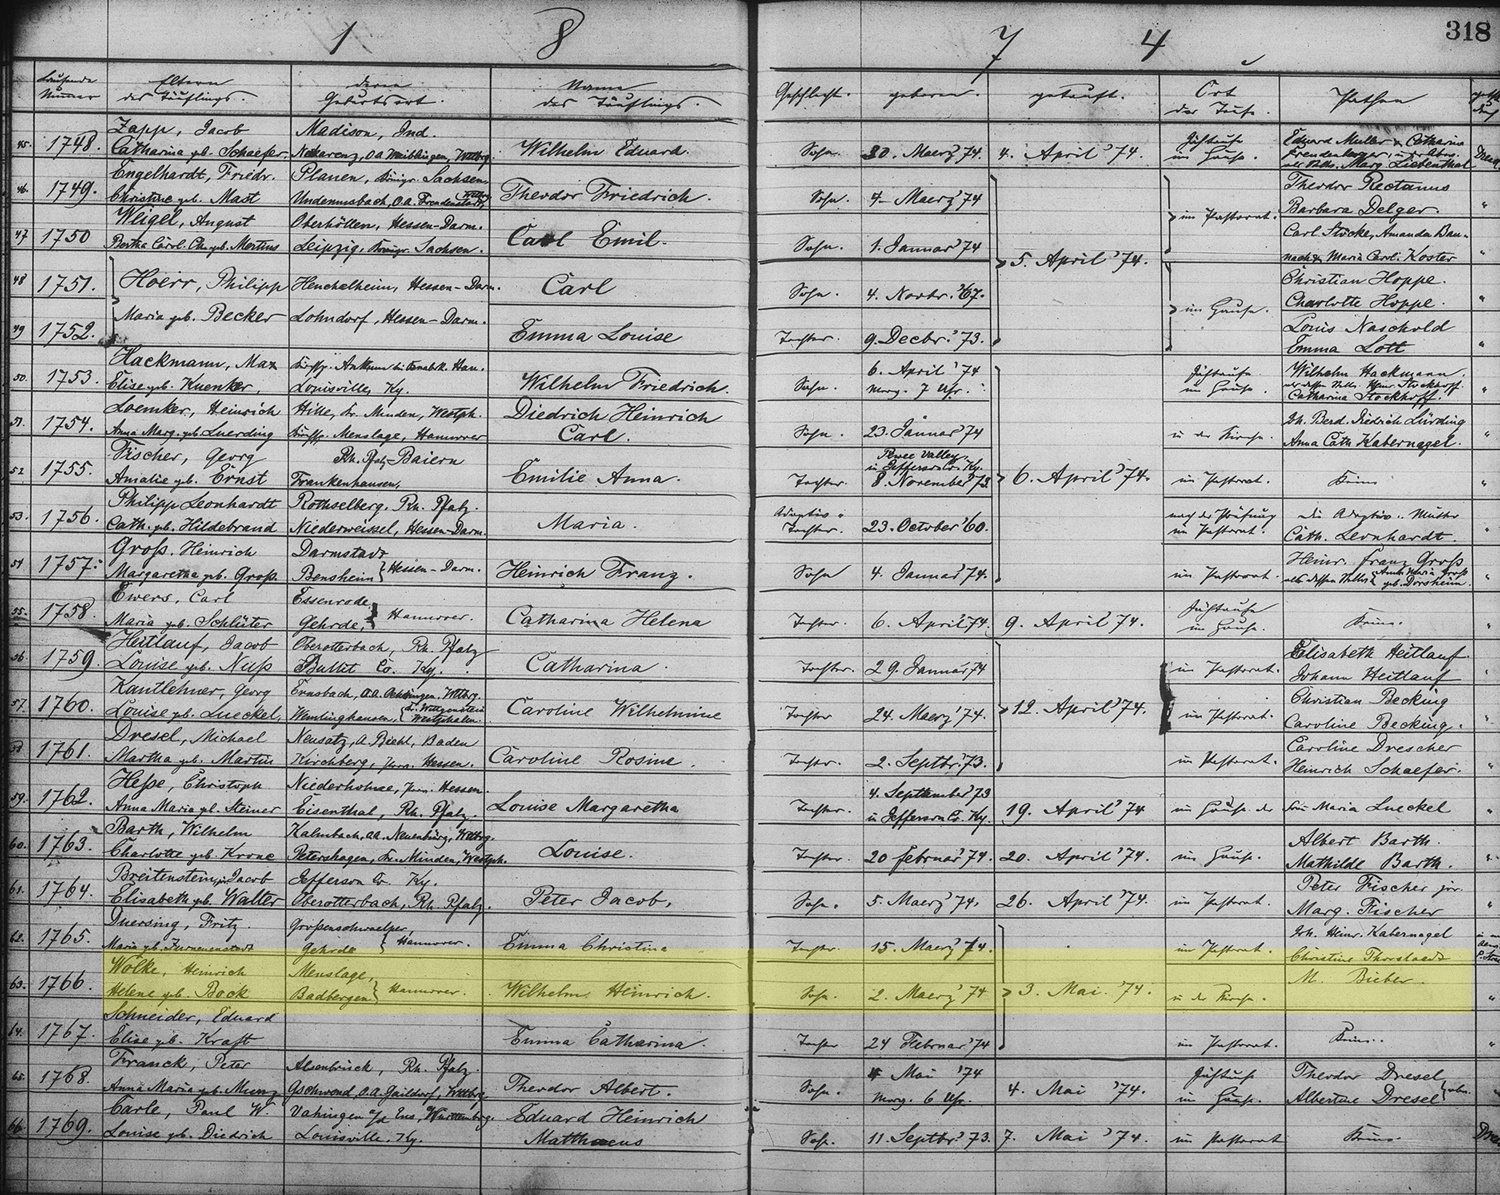 1 8 7 4 318
Laufende Nummer
Eltern des Täuflings.
deren Geburtsort.
Name des Täuflings.
Geschlecht.
geboren.
getauft.
Ort der Taufe.
Pathen
45. 1748. Zapp, Jacob Madison, Ind.
Catharina geb. Schaefer, O.A. Waiblingen, Wttbrg. Wilhelm Eduard. Sohn. 30. Maerz '74. 4. April '74. Jähtaufe im Hause. Eduard Muller & Catharina
46. 1749. Engelhardt, Friedr. Plauen, Königr. Sachsen
Christine geb. Mast O.A. Freudenstadt, Wttbrg. Theodor Friedrich. Sohn. 4. Maerz '74 im Pastorat. Theodor Rectanus
Barbara Delger.
47 1750 Weigel, August Hessen-Darm.
Bertha Carol. geb. Mertens Leipzig, Königr. Sachsen. Carl Emil. Sohn. 1. Januar '74 5. April '74. Carl Stocke, Amanda Bau-
nach & Maria Carol. Koster
48 1751. Hoerr, Philipp Heuchelheim, Hessen-Darm. Carl Sohn. 4. Novbr. '67. im Hause. Christian Hoppe.
Charlotte Hoppe.
49 1752. Maria geb. Becker Londorf, Hessen-Darm. Emma Louise Tochter 9. Decbr. '73. Louis Naschold
Emma Lott
50. 1753. Hackmann, Max Ankum bei Osnabrk. Han.
Elise geb. Kuenker. Louisville, Ky. Wilhelm Friedrich. Sohn. 6. April '74 morg. 7 Uhr. Jähtaufe im Hause. Wilhelm Hackmann.
Catharine Stockhoff.
51. 1754. Loemker, Heinrich Hille, Kr. Minden, Westph.
Anna Marg. geb. Luerding Menslage, Hannover Diedrich Heinrich Carl. Sohn. 23. Januar '74 in der Kirche. Joh. Bernd. Diedrich Lürding
Anna Cath. Kabernagel.
52. 1755. Fischer, Georg Rh. Pfalz-Baiern
Amalie geb. Ernst Frankenhausen, Emilie Anna. Tochter. in Jefferson Co. Ky. 8. November '73. 6. April '74. im Pastorat. Keine
53. 1756. Philipp Leonhardt Rothselberg. Rh. Pfalz.
Cath. geb. Hildebrand Niederweisel, Hessen-Darm. Maria. Adoptiv Tochter. 23. October '60. nach der Prüfung im Pastorat. die Adoptiv-Mutter
Cath. Leonhardt.
54 1757. Groß, Heinrich Darmstadt
Margaretha geb. Groß. Bensheim Hessen-Darm. Heinrich Franz. Sohn 4. Januar '74. im Pastorat. Heinr. Franz Groß
Anna Maria Groß geb. Dorsheim.
55. 1758. Ewers, Carl Essenrode,
Maria geb. Schlüter Gehrde, Hannover. Catharina Helena Tochter. 6. April '74. 9. April '74. Jähtaufe im Hause. Keine.
56. 1759. Heitlauf, Jacob Oberotterbach, Rh. Pfalz
Louise geb. Nuß Bullet Co. Ky. Catharina. Tochter. 29. Januar '74 im Pastorat. Elisabeth Heitlauf
Johann Heitlauf
57. 1760. Kantlehner, Georg Ernsbach, O.A. Oehringen, Wttbrg.
Louise geb. Lueckel, Wemlinghausen, Kr. Wittgenstein Westphalen. Caroline Wilhelmine Tochter 24. Maerz '74. 12. April '74. im Pastorat. Christian Becking
Caroline Becking.
58 1761. Dresel, Michael Neusatz, A. Buehl, Baden
Martha geb. Martin Kirchberg, Hessen. Caroline Rosine Tochter. 2. Septbr. '73. im Pastorat. Caroline Drescher
Heinrich Schaefer.
59. 1762. Heße, Christoph Niederhohne, Hessen.
Anna Maria geb. Steiner Eisenthal, Rh. Pfalz. Louise Margaretha Tochter. 4. September '73 in Jefferson Co. Ky. 19. April '74 im Hause der Frau Maria Lueckel
60. 1763. Barth, Wilhelm Kalmbach, O.A. Neuenbürg, Wttbrg.
Charlotte geb. Krone Petershagen, Kr. Minden, Westph. Louise. Tochter. 20 Februar '74. 20. April '74. im Hause. Albert Barth.
Mathilde Barth.
61. 1764. Breitenstein, Jacob Jefferson Co. Ky.
Elisabeth geb. Walter Oberotterbach, Rh. Pfalz. Peter Jacob. Sohn. 5. Maerz '74. 26. April '74. im Pastorat. Peter Fischer jr.
Marg. Fischer
62. 1765. Duersing, Fritz.
Gehrde Hannover. Emma Christina Tochter. 15. Maerz '74. im Pastorat. Joh. Heinr. Kabernagel
Christine Thorstaedt
63. 1766. Wölke, Heinrich Menslage,
Helene geb. Bock Badbergen Hannover. Wilhelm Heinrich. Sohn. 2. Maerz '74 3. Mai '74. in der Kirche. M. Bieber.
64. 1767. Schneider, Eduard
Elise geb. Kraft Emma Catharina. Tochter 24 Februar '74 im Pastorat. Keine.
65. 1768. Franck, Peter Alsenbrück, Rh. Pfalz.
Anna Maria geb. Munz Gschwend O.A. Gaildorf, Wttbrg. Theodor Albert. Sohn. 4 Mai '74 morg. 6 Uhr. 4. Mai '74. Jähtaufe im Hause. Theodor Dresel
Albertine Dresel
66. 1769. Carle, Paul W. Vaihingen a/d Ens. Württemberg.
Louise geb. Diedrich Louisville, Ky. Eduard Heinrich Matthaeus Sohn. 11. Septbr. '73. 7. Mai '74. im Pastorat Keine.